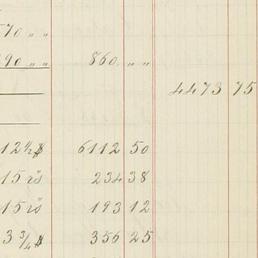 570 „ „
290 „ „ 860 „ „
4473 75
12½ $ 6112 50
15 rö 234 38
15 rö 193 12
3 3/4 $ 356 25